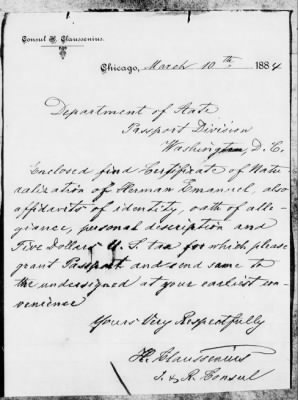 Consul H. Claussenius.
Chicago, March 10th. 1884
Department of State
Passport Division
Washington, D. C.
Enclosed find Certificate of Natu-
ralization of Herman Emanuel, also
affidavits of identity, oath of alle-
giance, personal description and
Five Dollars U. S. tax for which please
grant Passport and send same to
the undersigned at your earliest con-
venience
Yours Very Respectfully
H. Claussenius
I. & R. Consul